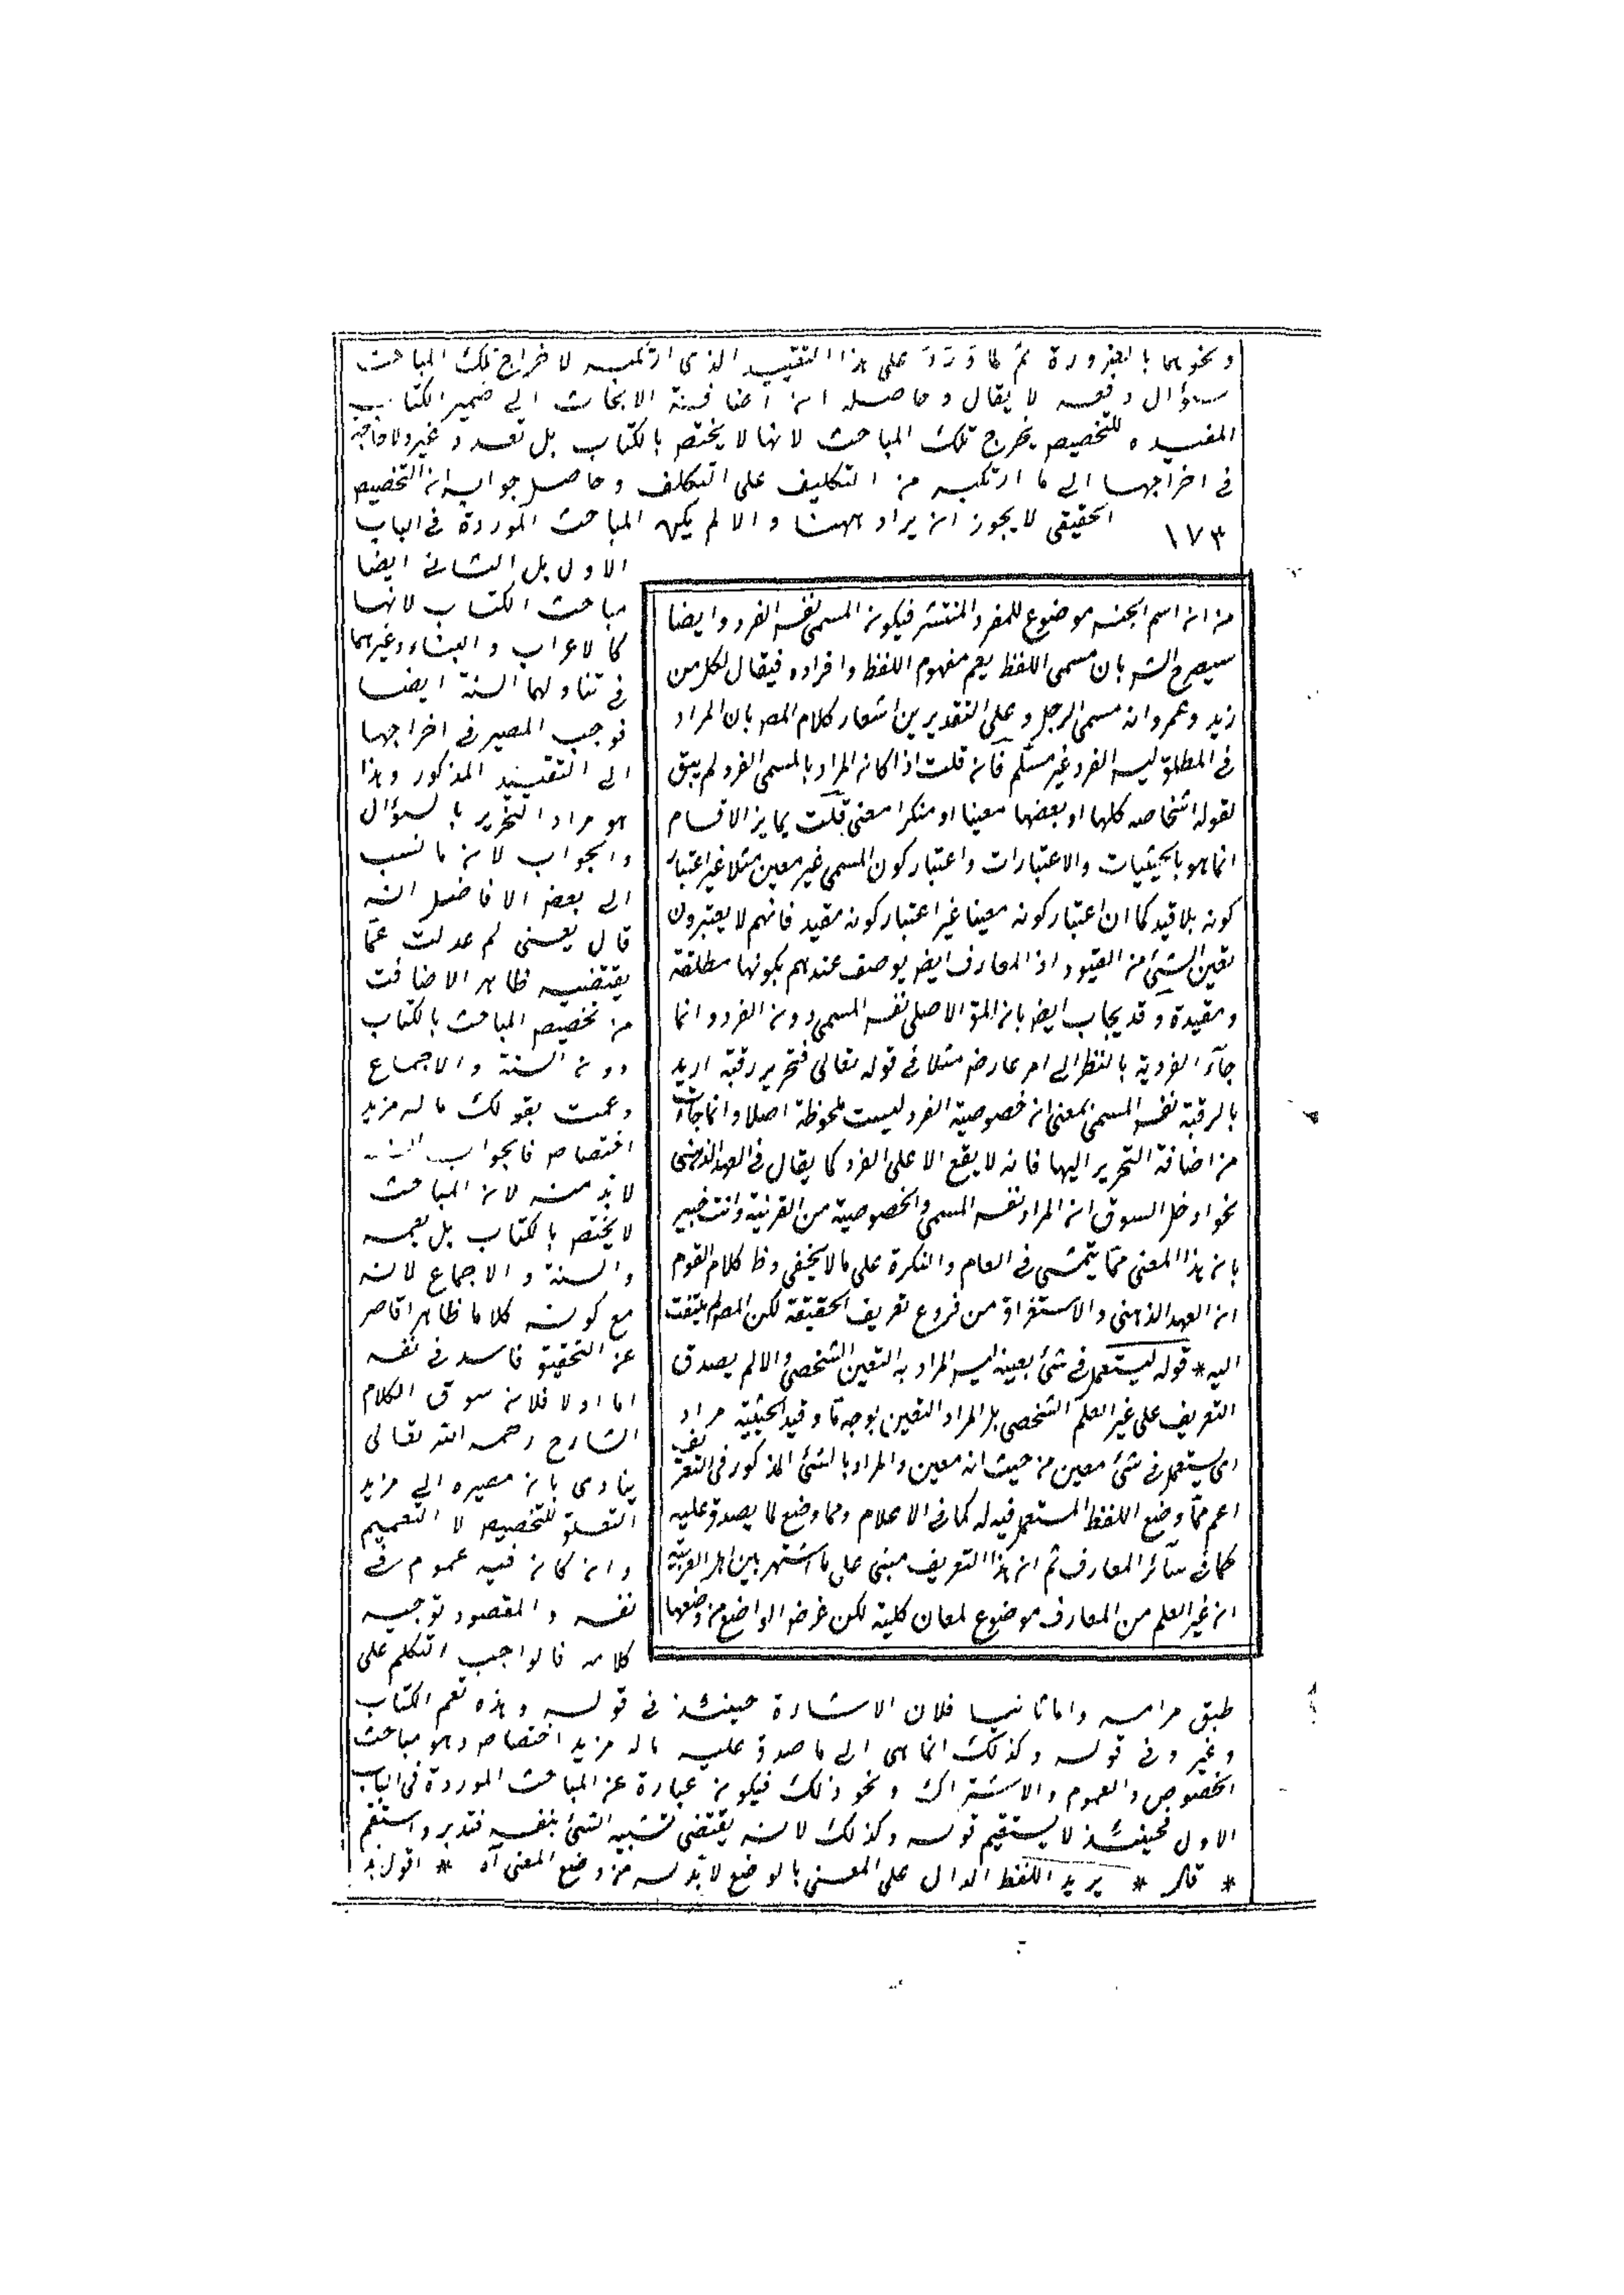 ونحوهما بالضرورة ثم لما وَرَدَ على هذا التقييد الذى ارتكبه لاخراج تلك المباحث
سؤال دفعه لا يقال وحاصله ان اضافة الابحاث الى ضمير الكتاب
المفيدة للتخصيص يخرج تلك المباحث لانها لا يختص بالكتاب بل تعمه وغيره ولا حاجة
فى اخراجها الى ما ارتكبه من التكليف على التكلف وحاصل جوابه ان التخصيص
الحقيقى لا يجوز ان يراد ههنا والا لم يكن المباحث الموردة فى الباب
١٧٣
الاول بل الثانى ايضا
مباحث الكتاب لانها
كالاعراب والبناء وغيرهما
فى تناولهما السنة ايضا
فوجب المصير فى اخراجها
الى التقييد المذكور وهذا
هو مراد التحرير بالسؤال
والجواب لان ما نسب
الى بعض الافاضل انه
قال يعنى لم عدلت عمّا
يقتضيه ظاهر الاضافة
من تخصيص المباحث بالكتاب
دون السنة والاجماع
وعمت بقولك ماله مزيد
اختصاص فالجواب انه
لابد منه لان المباحث
لا يختص بالكتاب بل يعمه
والسنة والاجماع لانه
مع كونه كلاما ظاهرا قاصر
عن التحقيق فاسد فى نفسه
اما اولا فلان سوق الكلام
الشارح رحمه الله تعالى
ينادى بان مصيره الى مزيد
التعلق للتخصيص لا التعميم
وان كان فيه عموم فى
نفسه والمقصود توجيه
كلامه فالواجب التكلم على
طبق مرامه واما ثانيا فلان الاشارة حينئذ فى قوله وهذه تعم الكتاب
وغيره وفى قوله وكذلك انما هى الى ما صدق عليه ماله مزيد اختصاص وهو مباحث
الخصوص والعموم والاشتراك ونحو ذلك فيكون عبارة عن المباحث الموردة فى الباب
الاول فحينئذ لا يستقيم قوله وكذلك لانه يقتضى تشبيه الشئ بنفسه فتدبر واستقم
* قال * يريد اللفظ الدال على المعنى بالوضع لابد له من وضع المعنى آه * اقول
من ان اسم الجنس موضوع للفرد المنتشر فيكون المسمى نفس الفرد وايضا
سيصرح الش بان مسمى اللفظ يعم مفهوم اللفظ وافراده فيقال لكل من
زيد وعمرو انه مسمى الرجل وعلى التقديرين اشعار كلام المص بان المراد
فى المطلق ليس الفرد غير مسلّم فان قلت اذا كان المراد بالمسمى الفرد لم يبق
لقوله اشخاصه كلها او بعضها معينا او منكرا معنى قلت تمايز الاقسام
انما هو بالحيثيات والاعتبارات واعتبار كون المسمى غير معين مثلا غير اعتبار
كونه بلا قيد كما ان اعتبار كونه معينا غير اعتبار كونه مقيد فانهم لا يعتبرون
تعين الشئ من القيود اذ المعارف ايض يوصف عندهم بكونها مطلقة
ومقيدة وقد يجاب ايض بان المق الاصلى نفس المسمى دون الفرد وانما
جآء الفردية بالنظر الى امر عارض مثلا فى قوله تعالى فتحرير رقبة اريد
بالرقبة نفس المسمى بمعنى ان خصوصية الفرد ليست ملحوظة اصلا وانما جآءت
من اضافة التحرير اليها فانه لا يقع الا على الفرد كما يقال فى العهد الذهنى
نحو ادخل السوق ان المراد نفس المسمى والخصوصية من القرنية وانت خبير
بان هذا المعنى ممّا يتمشى فى العام والنكرة على مالا يخفى وظ كلام القوم
ان العهد الذهنى والاستغراق من فروع تعريف الحقيقة لكن المص لم يلتفت
اليه * قوله ليستعمل فى شئ بعينه ليس المراد به التعين الشخصى والا لم يصدق
التعريف على غير العلم الشخصى بل المراد التعين بوجه مّا وقيد الحيثية مراد
اى يستعمل فى شئ معين من حيث انه معين والمراد بالشئ المذكور فى التعريف
اعم ممّا وضع اللفظ المستعمل فيه له كما فى الاعلام ومما وضع لما يصدق عليه
كما فى سآئر المعارف ثم ان هذا التعريف مبنى على ما اشتهر بين اهل العربية
ان غير العلم من المعارف موضوع لمعان كلية لكن غرض الواضع من وضعها